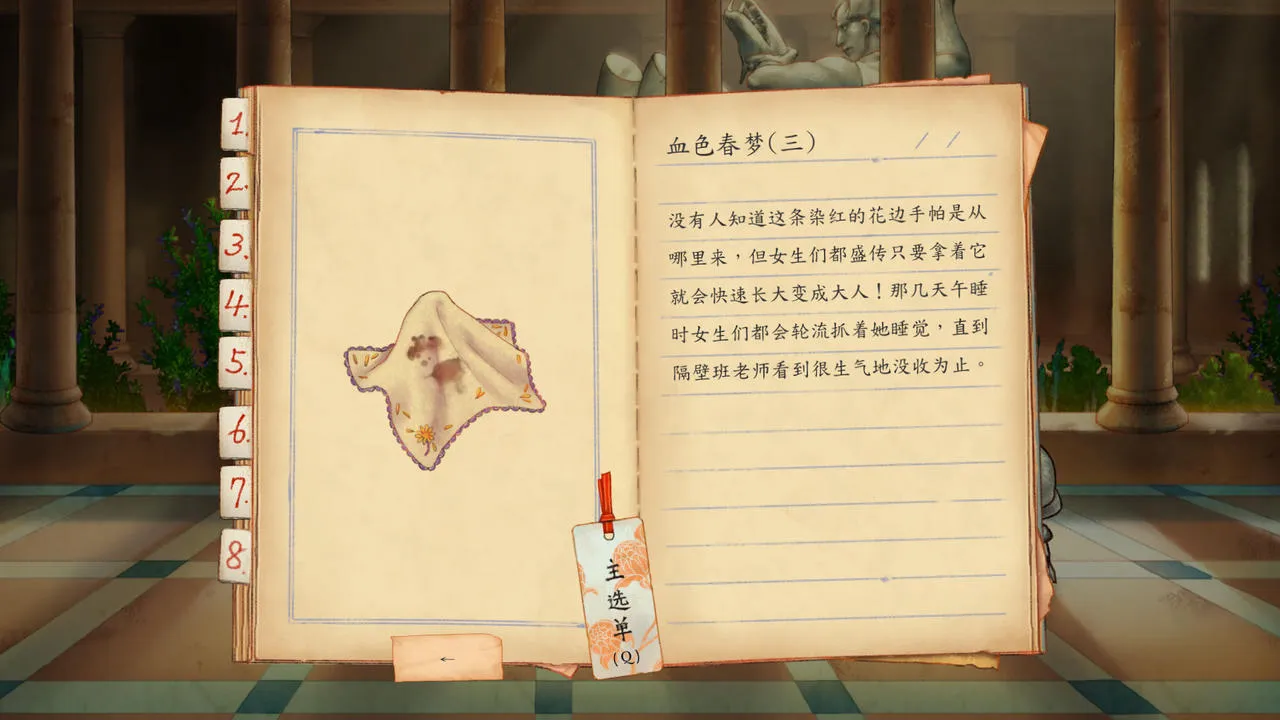 1.
2.
3.
4.
5.
6.
7.
8.
血色春梦(三) / /
没有人知道这条染红的花边手帕是从
哪里来，但女生们都盛传只要拿着它
就会快速长大变成大人！那几天午睡
时女生们都会轮流抓着她睡觉，直到
隔壁班老师看到很生气地没收为止。
主选单(Q)
←